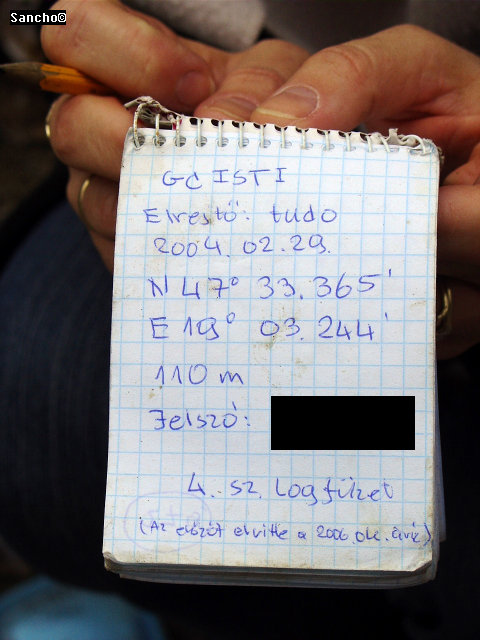 Sancho©
GCISTI
Elrejtő: tudo
2004. 02. 29.
N 47° 33.365'
E 19° 03.244'
110 m
Jelszó:
4. sz. Logfüzet
(Az előzőt elvitte a 2006. okt. árvíz)